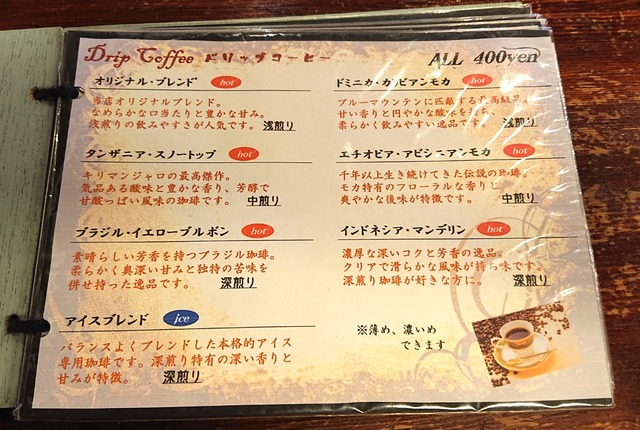 Drip Coffee ドリップコーヒー ALL 400yen
オリジナル・ブレンド hot
当店オリジナルブレンド。
なめらかな口当たりと豊かな甘み。
浅煎りの飲みやすさが人気です。 浅煎り
ドミニカ・カリビアンモカ hot
ブルーマウンテンに匹敵する最高級品。
甘い香りと円やかな酸味を持ち、
柔らかく飲みやすい逸品です。 浅煎り
タンザニア・スノートップ hot
キリマンジャロの最高傑作。
気品ある酸味と豊かな香り、芳醇で
甘酸っぱい風味の珈琲です。 中煎り
エチオピア・アビシニアンモカ hot
千年以上生き続けてきた伝説の珈琲。
モカ特有のフローラルな香りと
爽やかな後味が特徴です。 中煎り
ブラジル・イエローブルボン hot
素晴らしい芳香を持つブラジル珈琲。
柔らかく奥深い甘みと独特の苦味を
併せ持った逸品です。 深煎り
インドネシア・マンデリン hot
濃厚な深いコクと芳香の逸品。
クリアで滑らかな風味が持ち味です。
深煎り珈琲が好きな方に。 深煎り
アイスブレンド ice
バランスよくブレンドした本格的アイス
専用珈琲です。深煎り特有の深い香りと
甘みが特徴。 深煎り
※薄め、濃いめ
できます